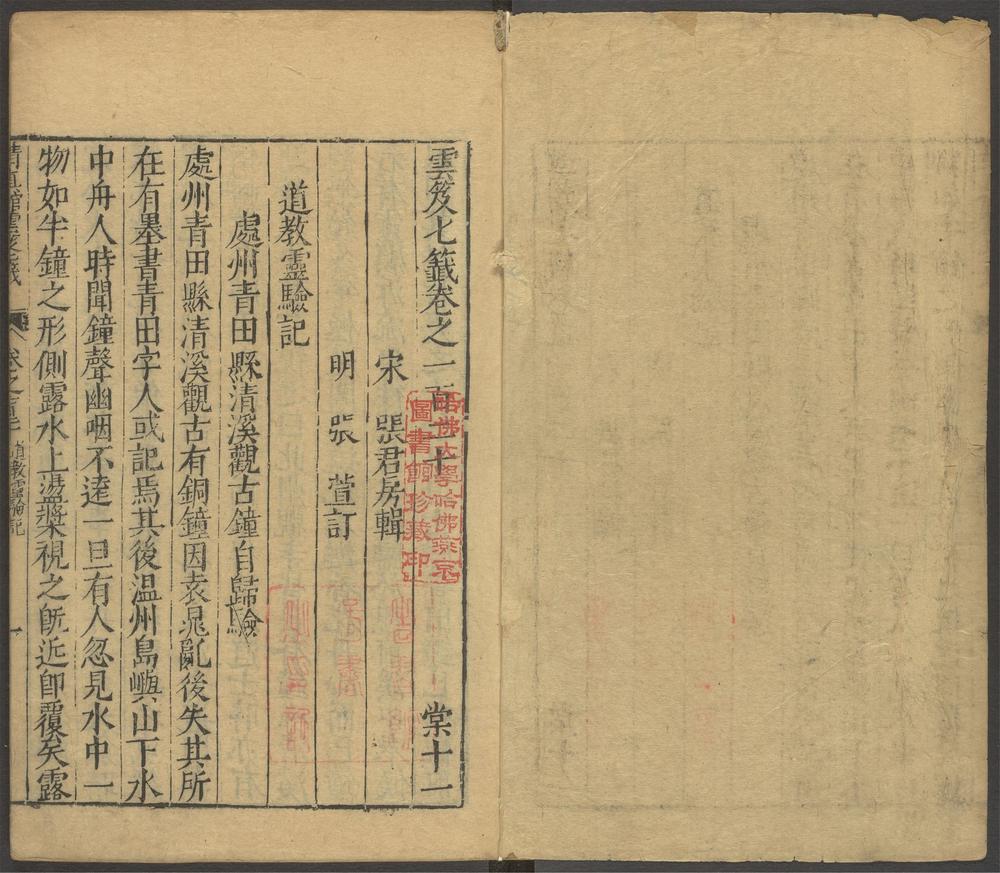 雲笈七籤卷之一百二十 棠十一
宋 張君房輯
明 張 萱訂
道教靈驗記
處州青田縣清溪觀古鐘自歸驗
處州青田縣清溪觀古有銅鐘因袁晁亂後失其所
在有墨書青田字人或記焉其後温州島嶼山下水
中舟人時聞鐘聲幽咽不逹一旦有人忽見水中一
物如半鐘之形側露水上盪槳視之旣近即覆矣露
哈佛大學哈佛燕京
圖書館珍藏印